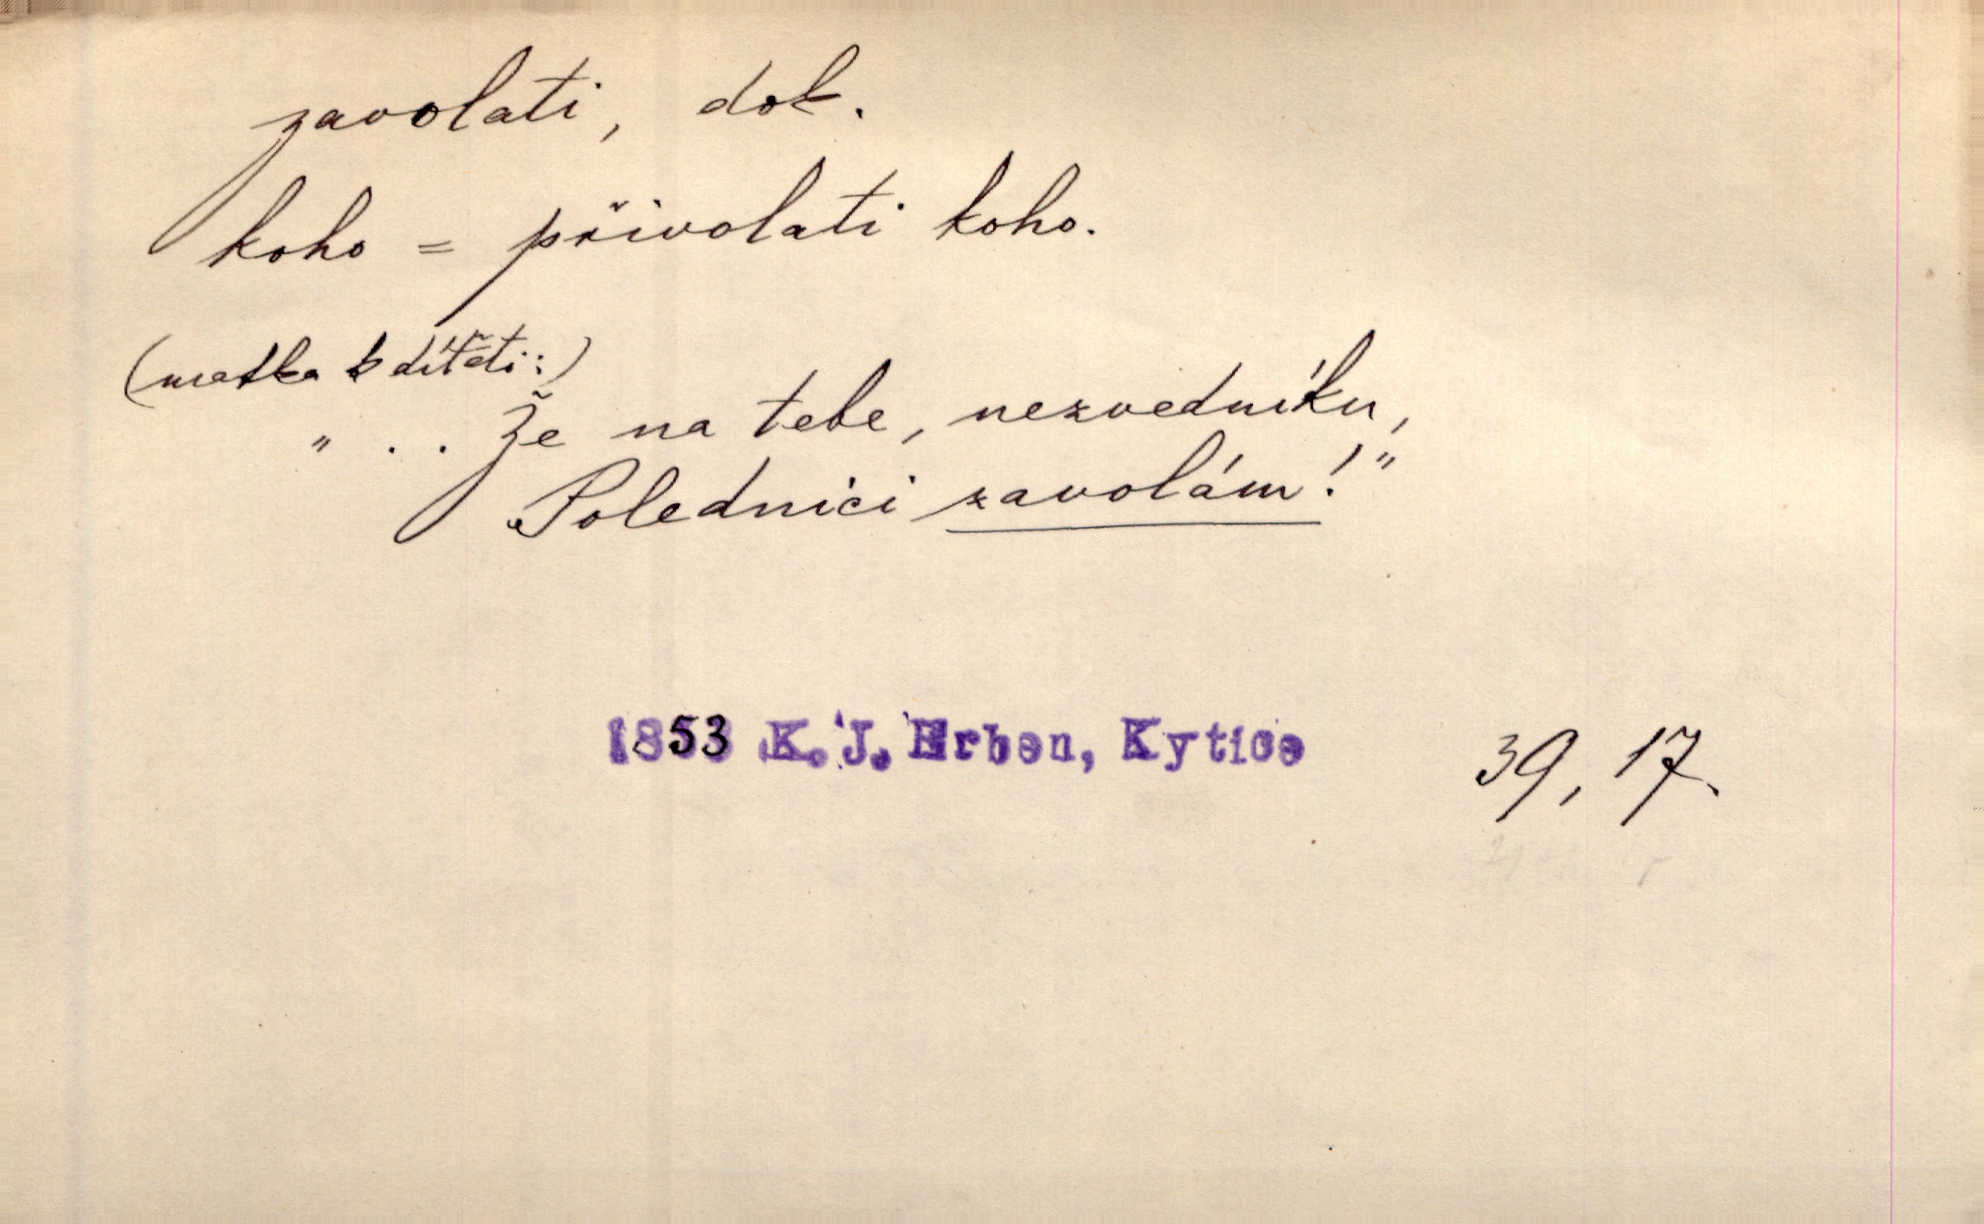 zavolati, dok.
koho = přivolati koho.
(matka k dítěti:)
" . . Že na tebe, nezvedníku,
Polednici zavolám!"
1853 K. J. Erben, Kytice 39, 17.